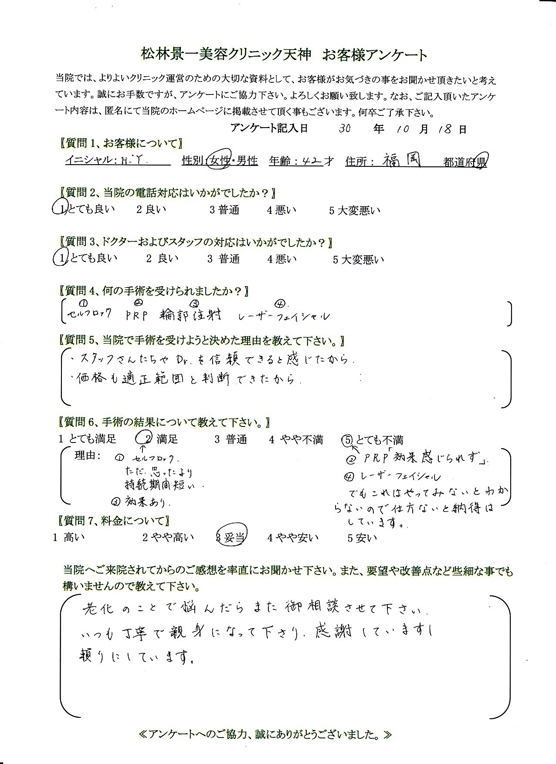 松林景一美容クリニック天神 お客様アンケート
当院では、よりよいクリニック運営のための大切な資料として、お客様がお気づきの事をお聞かせ頂きたいと考え
ています。誠にお手数ですが、アンケートにご協力下さい。よろしくお願い致します。なお、ご記入頂いたアンケ
ート内容は、匿名にて当院のホームページに掲載させて頂く事もございます。何卒ご了承下さい。
アンケート記入日 30 年 10 月 18 日
【質問1、お客様について】
イニシャル:N.Y. 性別:女性・男性 年齢:42才 住所:福岡 都道府県
【質問2、当院の電話対応はいかがでしたか?】
1とても良い 2良い 3普通 4悪い 5大変悪い
【質問3、ドクターおよびスタッフの対応はいかがでしたか?】
1とても良い 2 良い 3 普通 4悪い 5大変悪い
【質問4、何の手術を受けられましたか?】
① ② ③ ④
セルフロック PRP 輪郭注射 レーザーフェイシャル
【質問5、当院で手術を受けようと決めた理由を教えて下さい。】
・スタッフさんたちやDr.も信頼できると感じたから
・価格も適正範囲と判断できたから
【質問6、手術の結果について教えて下さい。】
1とても満足 2 満足 3 普通 4 やや不満 5とても不満
理由: ① セルフロック
ただ思ったより
持続期間短い.
③効果あり.
② PRP「効果感じられず」
④レーザーフェイシャル
でもこれはやってみないとわか
らないので仕方ないと納得は
しています。
【質問7、料金について】
1高い 2やや高い 3妥当 4やや安い 5安い
当院へご来院されてからのご感想を率直にお聞かせ下さい。また、要望や改善点など些細な事でも
構いませんので教えて下さい。
老化のことで悩んだらまた御相談させて下さい.
いつも丁寧で親身になって下さり、感謝しています!
頼りにしています。
≪アンケートへのご協力、誠にありがとうございました。≫